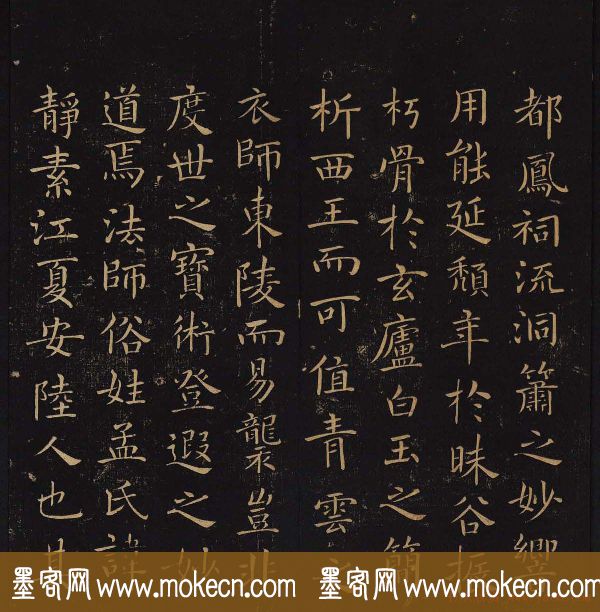 都鳳祠流洞簫之妙響
用能延頽年於昧谷振
朽骨於玄廬白玉之簡
析西王而可值青雲之
衣師東陵而易襲豈非
度世之寶術登遐之妙
道焉法師俗姓孟氏諱
靜素江夏安陸人也其
墨客网 www.mokecn.com 墨客网 www.mokecn.com